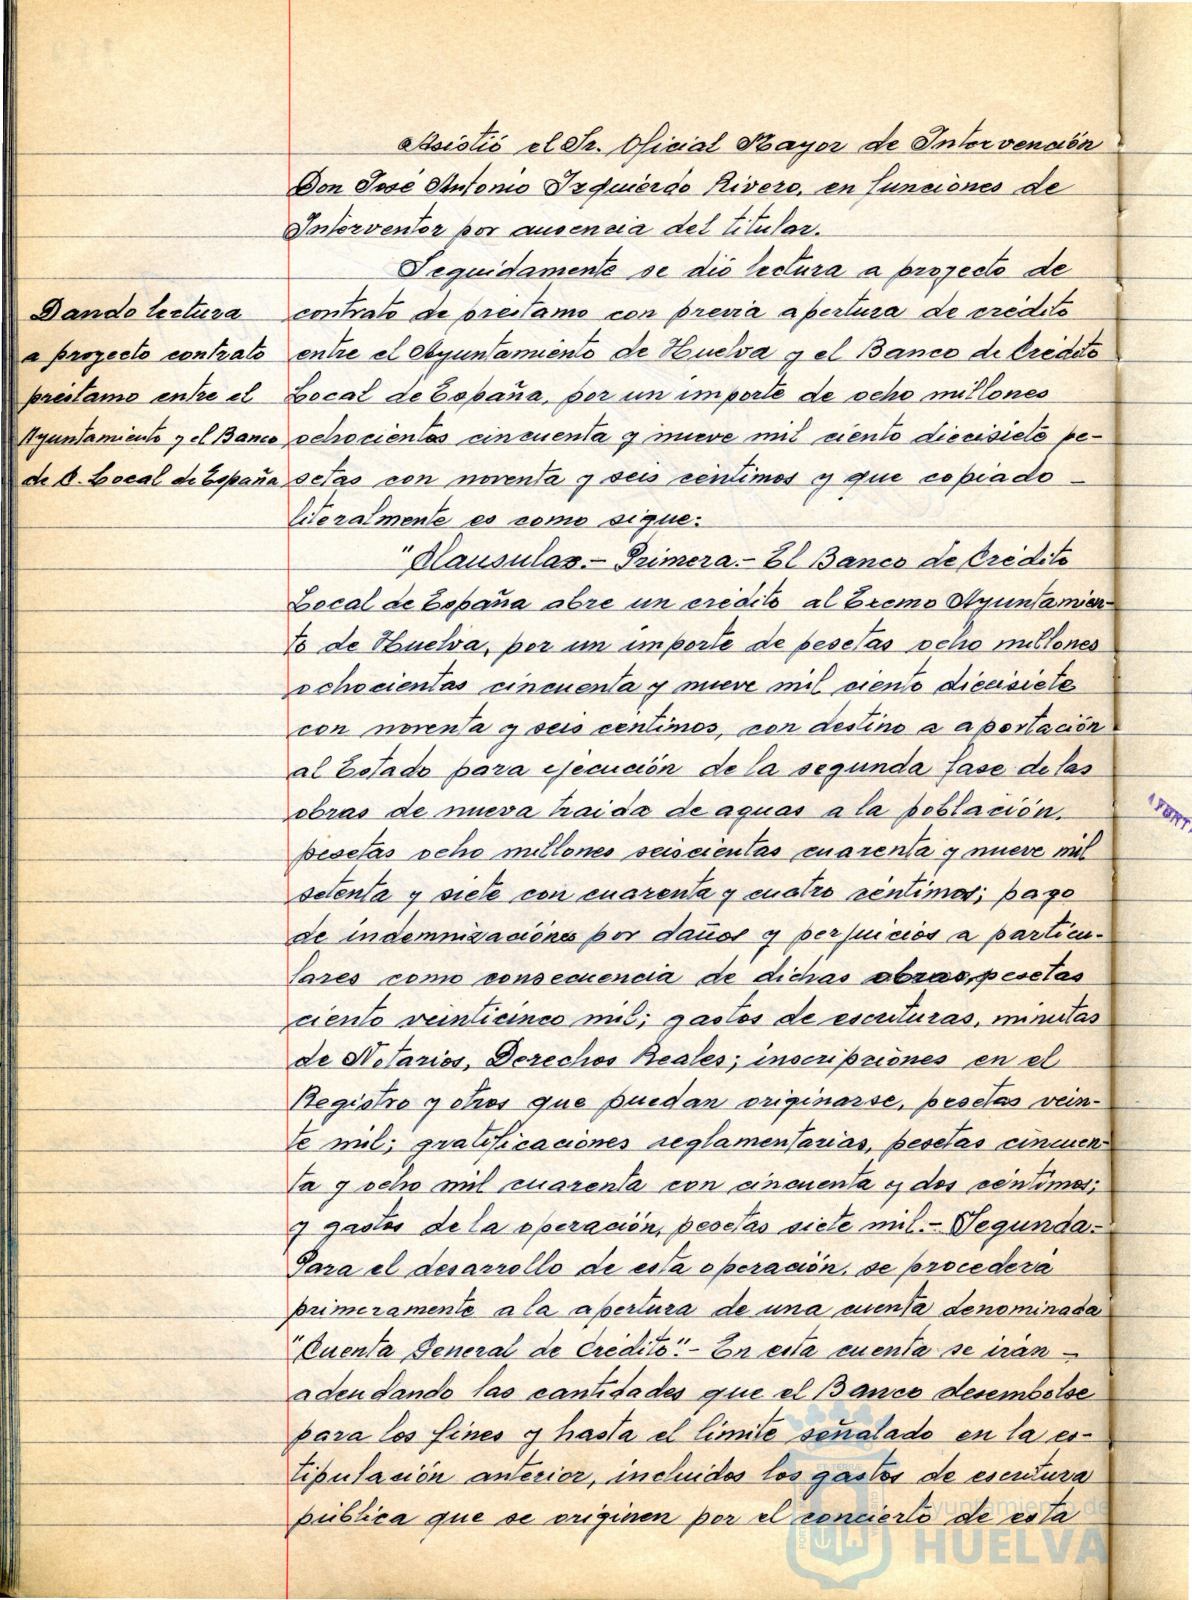 Asistió el Sr. Oficial Mayor de Intervención
Don José Antonio Izquierdo Rivero, en funciones de
Interventor por ausencia del titular.
Seguidamente se dió lectura a proyecto de
Dando lectura
a proyecto contrato
préstamo entre el
Ayuntamiento y el Banco
de C. Local de España
contrato de préstamo con previa apertura de crédito
entre el Ayuntamiento de Huelva y el Banco de Crédito
Local de España, por un importe de ocho millones
ochocientas cincuenta y nueve mil ciento diecisiete pe-
setas con noventa y seis céntimos y que copiado -
literalmente es como sigue:
"Clausulas.- Primera.- El Banco de Crédito
Local de España abre un crédito al Excmo Ayuntamien-
to de Huelva, por un importe de pesetas ocho millones
ochocientas cincuenta y nueve mil ciento diecisiete
con noventa y seis céntimos, con destino a aportación
al Estado para ejecución de la segunda fase de las
obras de nueva traida de aguas a la población,
pesetas ocho millones seiscientas cuarenta y nueve mil
setenta y siete con cuarenta y cuatro céntimos; pago
de indemnizaciónes por daños y perjuicios a particu-
lares como consecuencia de dichas obras, pesetas
ciento veinticinco mil; gastos de escrituras, minutas
de Notarios, Derechos Reales; inscripciones en el
Registro y otros que puedan originarse, pesetas vein-
te mil; gratificaciones reglamentarias, pesetas cincuen-
ta y ocho mil cuarenta con cincuenta y dos céntimos;
y gastos de la operación, pesetas siete mil.- Segunda.-
Para el desarrollo de esta operación, se procederá
primeramente a la apertura de una cuenta denominada
"Cuenta General de Crédito".- En esta cuenta se irán -
adeudando las cantidades que el Banco desembolse
para los fines y hasta el límite señalado en la es-
tipulación anterior, incluidos los gastos de escritura
pública que se originen por el concierto de esta
Ayuntamiento de
HUELVA